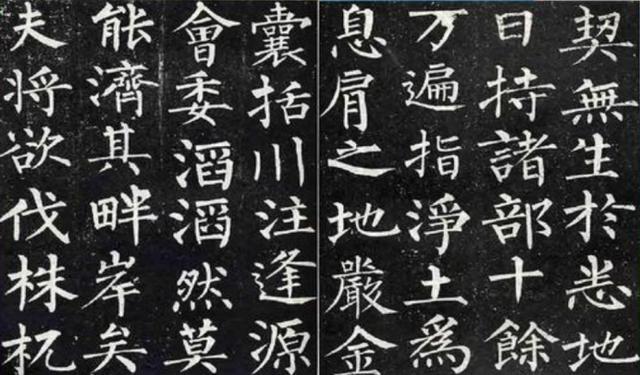 契無生於悉地
日持諸部十餘
万遍指淨土爲
息肩之地嚴金
囊括川注逢源
會委滔滔然莫
能濟其畔岸矣
夫將欲伐株杌